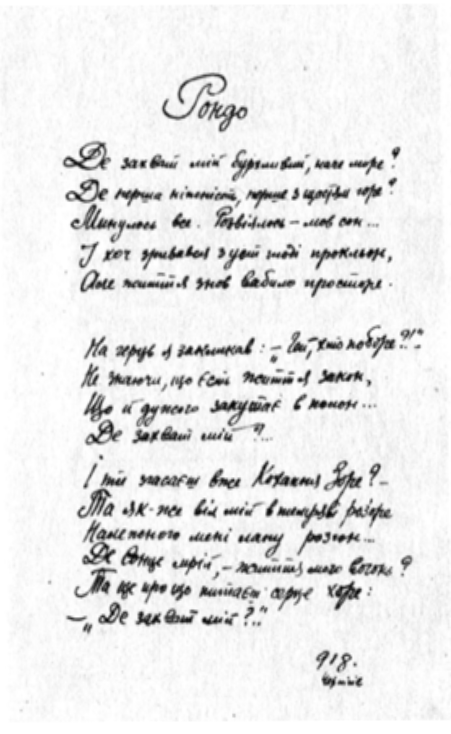 Рондо
Де захват мій бурхливий, наче море?
Де перша ніжність, перше з щастям горе?
Минулось все. Розвіялось – мов сон...
І хоч зривався з уст тоді прокльон,
Але життя знов вабило просторе.
На герць я закликав: – „Гей, хто поборе?!"
Не знаючи, що єсть життя закон,
Що й дужого закутає в полон...
Де захват мій?...
І ти згасаєш вже Кохання Зоре? –
Та як-же він мій в темряві розоре
Належного мені лану розгон...
Де Сонце мрій, – життя мого вогонь?
Та це про що питаєш серце хоре:
– „Де захват мій?.."
918.